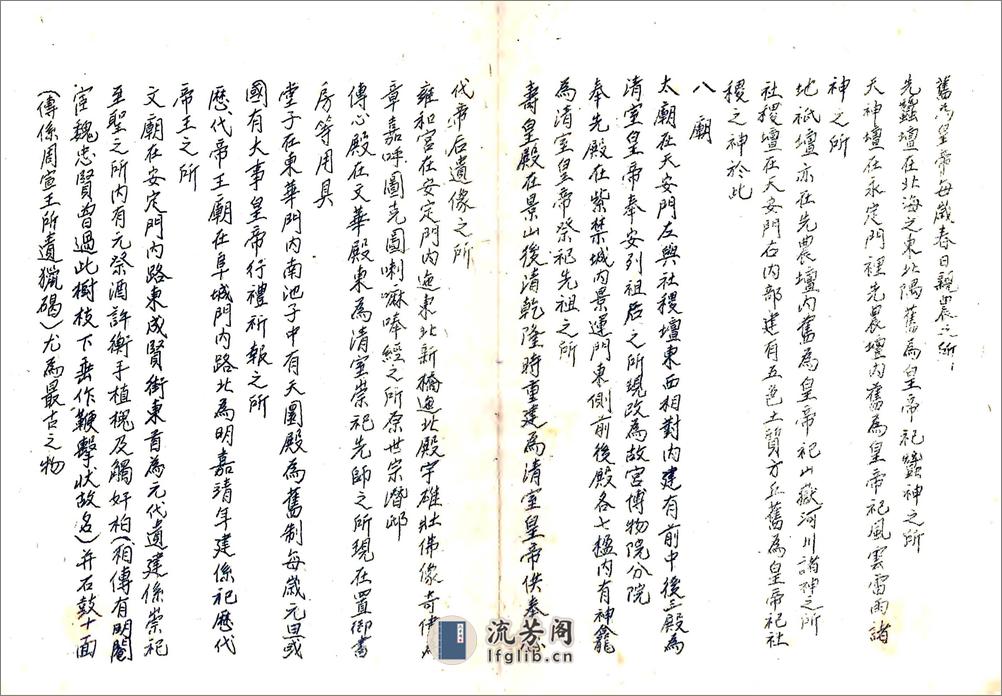 舊為皇帝每歲春日親農之所
先蠶壇在北海之東北隅舊為皇帝祀蠶神之所
天神壇在永定門裡先農壇內舊為皇帝祀風雲雷雨諸
神之所
地祇壇亦在先農壇內舊為皇帝祀山嶽河川諸神之所
社稷壇在天安門右內部建有五色土質方丘舊為皇帝祀社
稷之神於此
八廟
太廟在天安門左與社稷壇東西相對內建有前中後三殿為
清室皇帝奉安列祖后之所現改為故宮博物院分院
奉先殿在紫禁城內景運門東側前後殿各七楹內有神龕
為清室皇帝祭祀先祖之所
壽皇殿在景山後清乾隆時重建為清室皇帝供奉
代帝后遺像之所
雍和宮在安定門內迤東北新橋迤北殿宇雄壯佛像奇偉為
章嘉呼圖克圖喇嘛唪經之所原世宗潛邸
傳心殿在文華殿東為清室崇祀先師之所現在置御書
房等用具
堂子在東華門內南池子中有天圜殿為舊制每歲元旦或
國有大事皇帝行禮祈報之所
歷代帝王廟在阜城門內路北為明嘉靖年建係祀歷代
帝王之所
文廟在安定門內路東成賢街東首為元代遺建係崇祀
至聖之所內有元祭酒許衡手植槐及觸奸柏(相傳有明閹
宦魏忠賢曾過此樹枝下垂作鞭擊狀故名)并石鼓十面
(傳係周宣王所遺獵碣)尤為最古之物
流芳阁
lfglib.cn